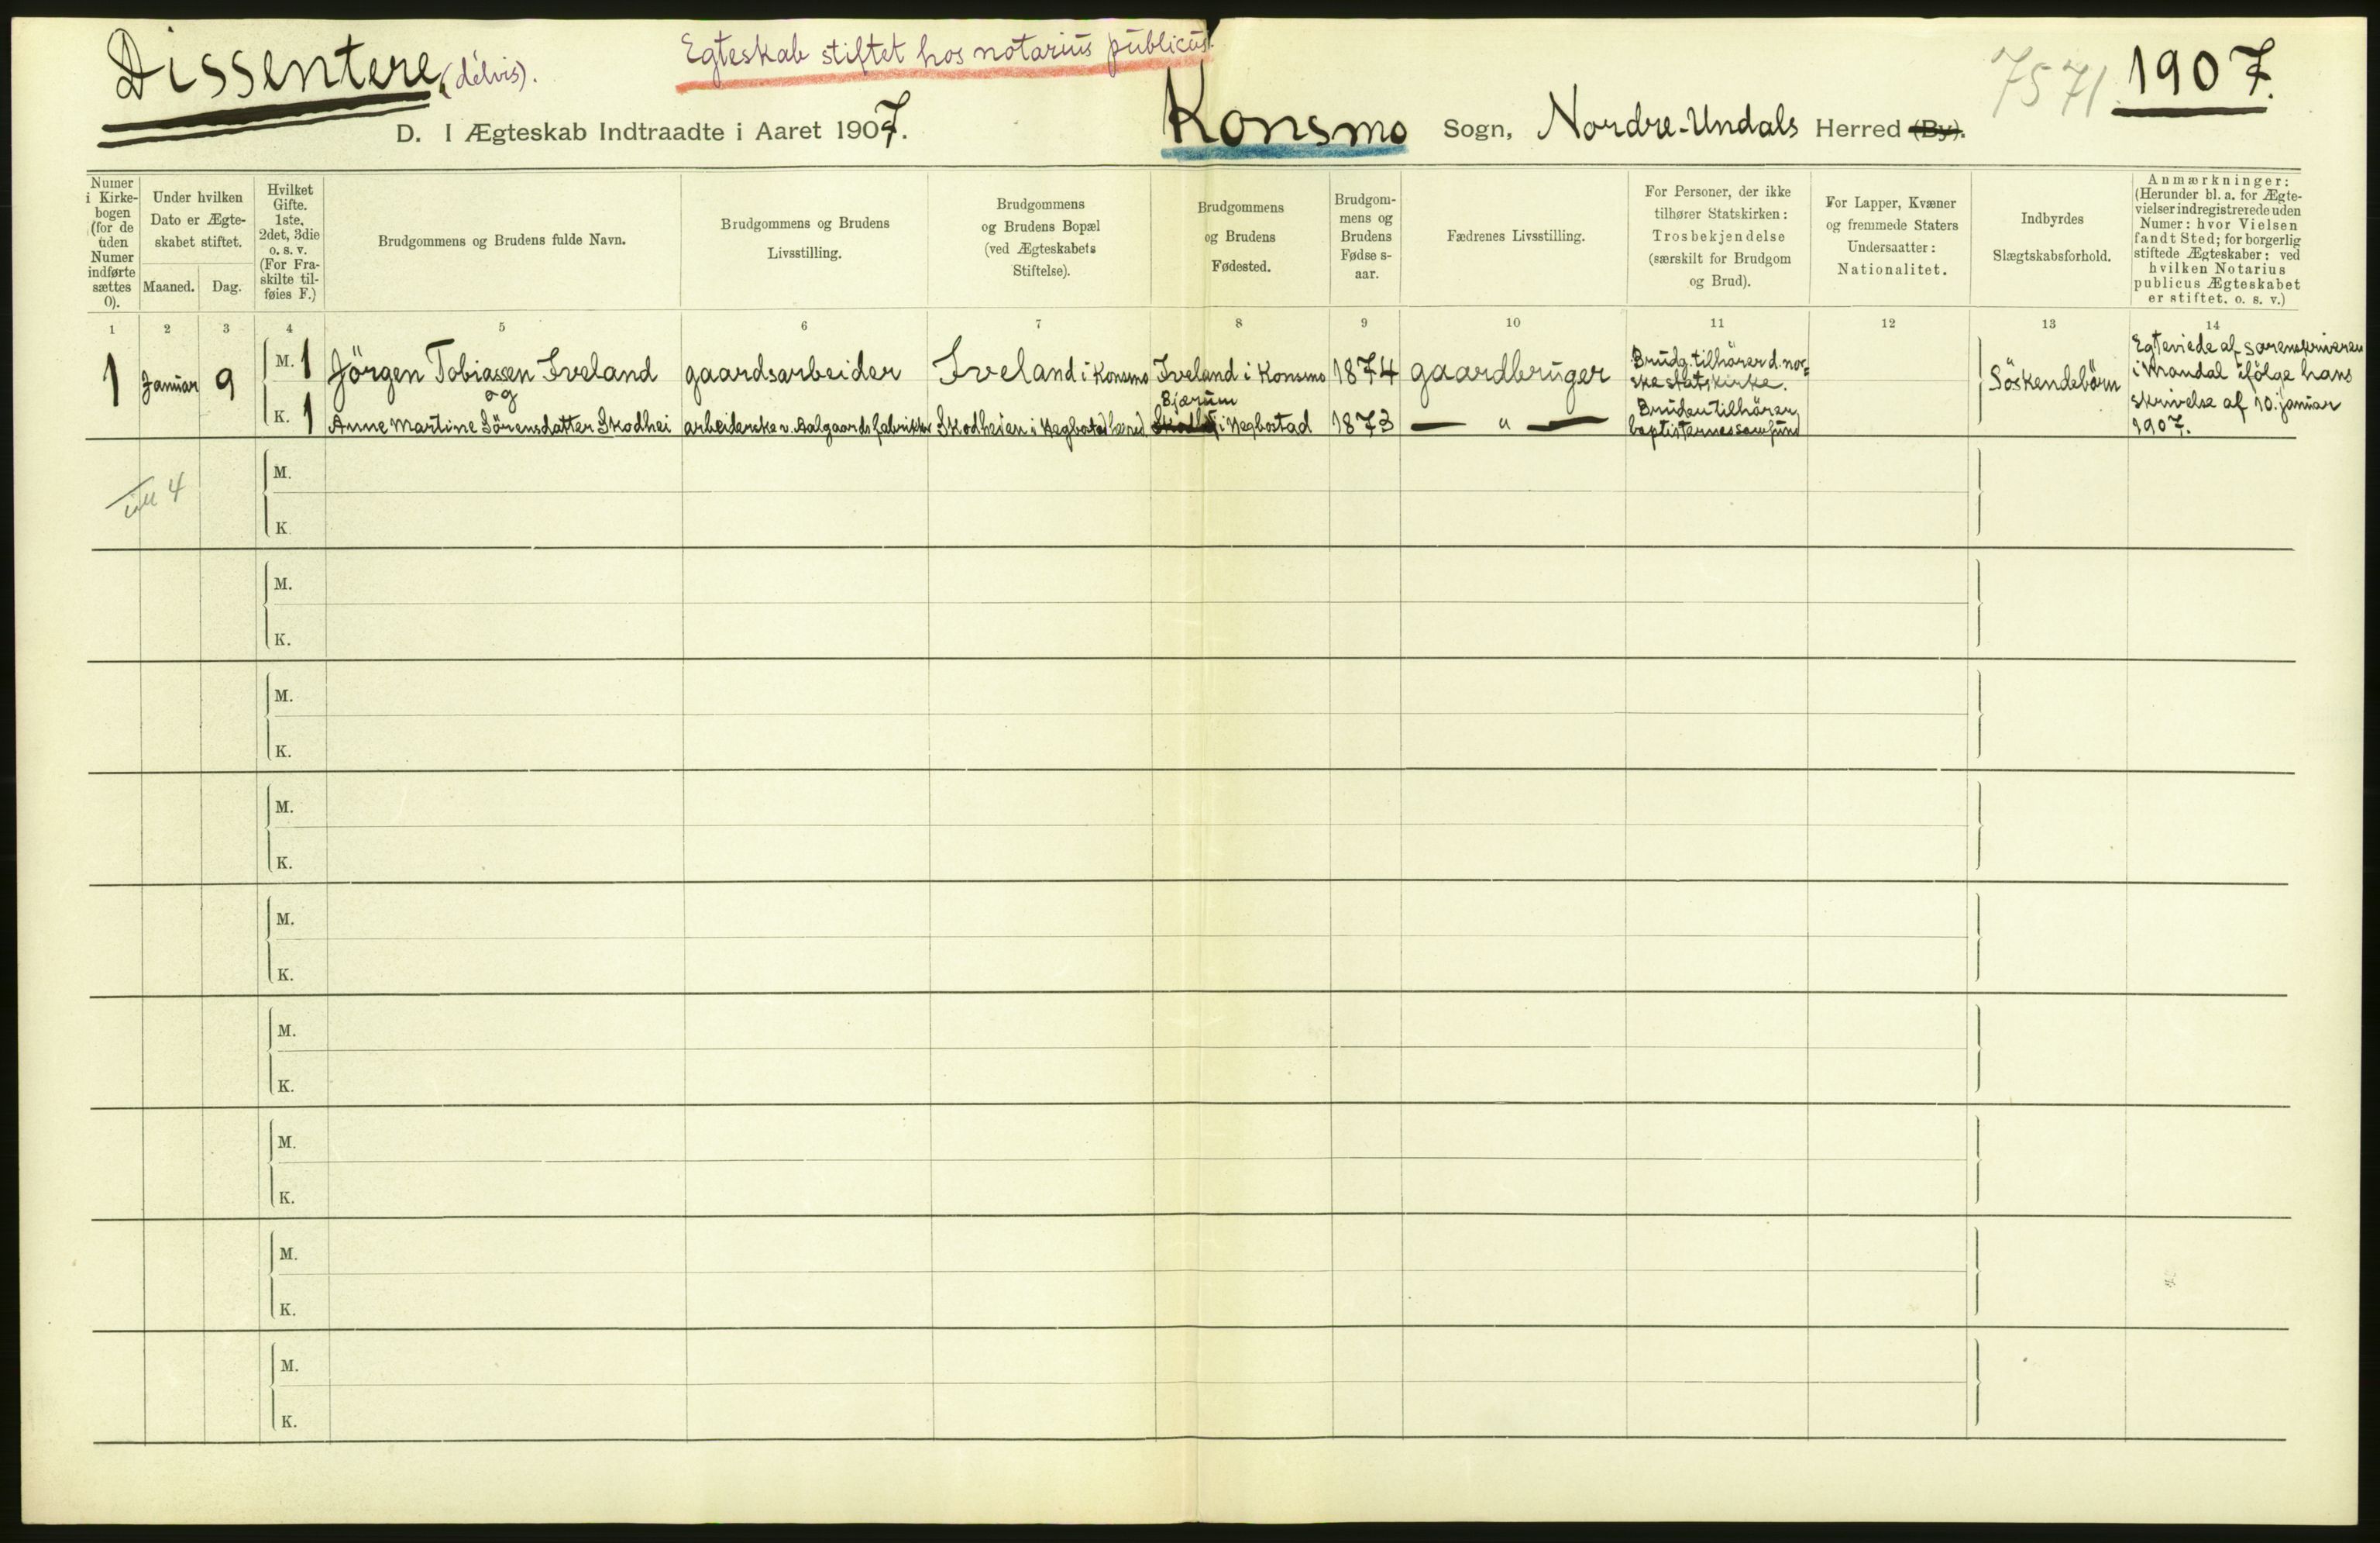 Dissentere (delvis).
Egteskab stiftet hos notarius publicus.
7571
1907.
D. I Ægteskab Indtraadte i Aaret 1907.
Konsmo Sogn, Nordre-Undals Herred (By).
Numer i Kirkebogen (for de uden Numer indførte sættes 0).
Under hvilken Dato er Ægteskabet stiftet.
Maaned. Dag.
Hvilket Gifte. 1ste, 2det, 3die o. s. v. (For Fraskilte tilføies F.)
Brudgommens og Brudens fulde Navn.
Brudgommens og Brudens Livsstilling.
Brudgommens og Brudens Bopæl (ved Ægteskabets Stiftelse).
Brudgommens og Brudens Fødested.
Brudgommens og Brudens Fødse s-aar.
Fædrenes Livsstilling.
For Personer, der ikke tilhører Statskirken: Trosbekjendelse (særskilt for Brudgom og Brud).
For Lapper, Kvæner og fremmede Staters Undersaatter: Nationalitet.
Indbyrdes Slægtskabsforhold.
Anmærkninger: (Herunder bl. a. for Ægtevielser indregistrerede uden Numer: hvor Vielsen fandt Sted; for borgerlig stiftede Ægteskaber: ved hvilken Notarius publicus Ægteskabet er stiftet. o. s. v.)
1 2 3 4 5 6 7 8 9 10 11 12 13 14
1 Januar 9
M. 1 Jörgen Tobiassen Iveland gaardsarbeider Iveland i Konsmo Iveland i Konsmo 1874 gaardbruger Brudg. tilhörer d. norske statskirke.
og
K. 1 Anne Martine Sörensdatter Skodhei arbeiderske v. Aalgaards fabrikker Skodheien i Hegbostad herred Bjærum i Hegbostad 1873 — " — Bruden tilhörer baptisternes samfund
Söskendebörn
Egteviede af sorenskriveren
i Mandal ifölge hans
skrivelse af 10. januar
1907.
4
M.
K
M.
K.
M.
K.
M.
K.
M.
K.
M.
K.
M.
K.
M.
K.
M.
K.